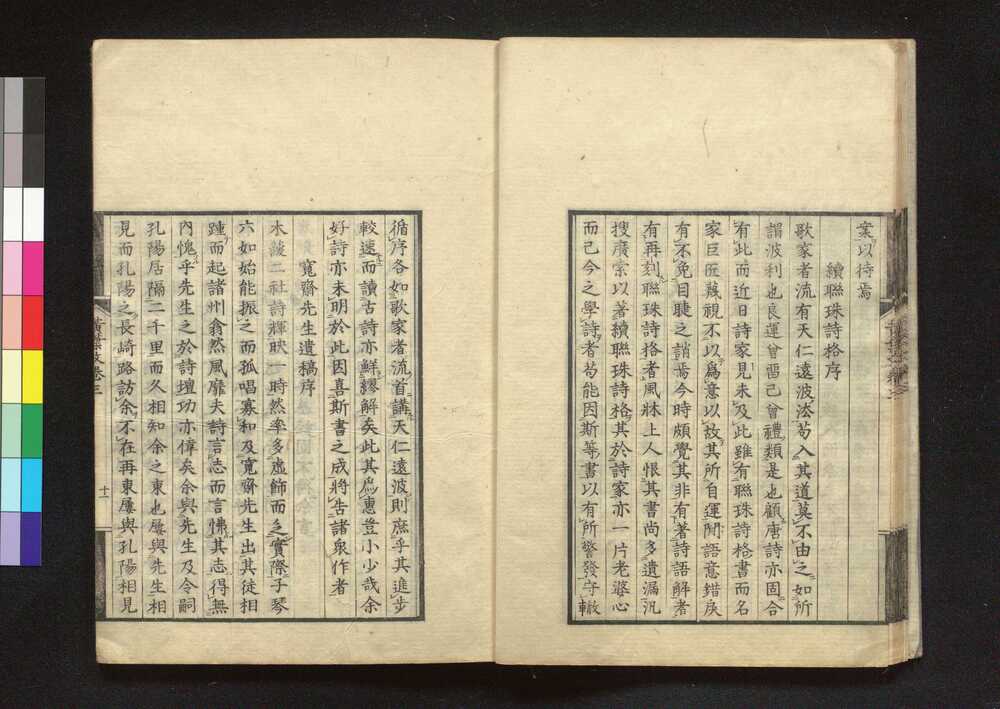 案以待焉
續聯珠詩格序
歌家者流有天仁遠波法苟入其道莫不由之如所
謂波利也良運曾畱己曾禮類是也顧唐詩亦固合
有此而近日詩家見未及此雖有聯珠詩格書而名
家巨匠蔑視不以爲意以故其所自運閒語意錯戾
有不免目睫之誚焉今時頗覺其非有著詩語解者
有再刻聯珠詩格者風牀上人恨其書尚多遺漏汎
搜廣索以著續聯珠詩格其於詩家亦一片老婆心
而已今之學詩者苟能因斯等書以有所警發守轍
循序各如歌家者流首講天仁遠波則庶乎其進步
較速而讀古詩亦鮮繆解矣此其爲惠豈小少哉余
好詩亦未明於此因喜斯書之成將告諸衆作者
寬齋先生遺稿序
木蘐二社詩輝映一時然率多虛飾而乏實際子琴
六如始能振之而孤唱寡和及寬齋先生出其徒相
踵而起諸州翕然風靡夫詩言志而言悖其志得無
內愧乎先生之於詩壇功亦偉矣余與先生及令嗣
孔陽居隔二千里而久相知余之東也屢與先生相
見而孔陽之長崎路訪余不在再東屢與孔陽相見
卷三
十二